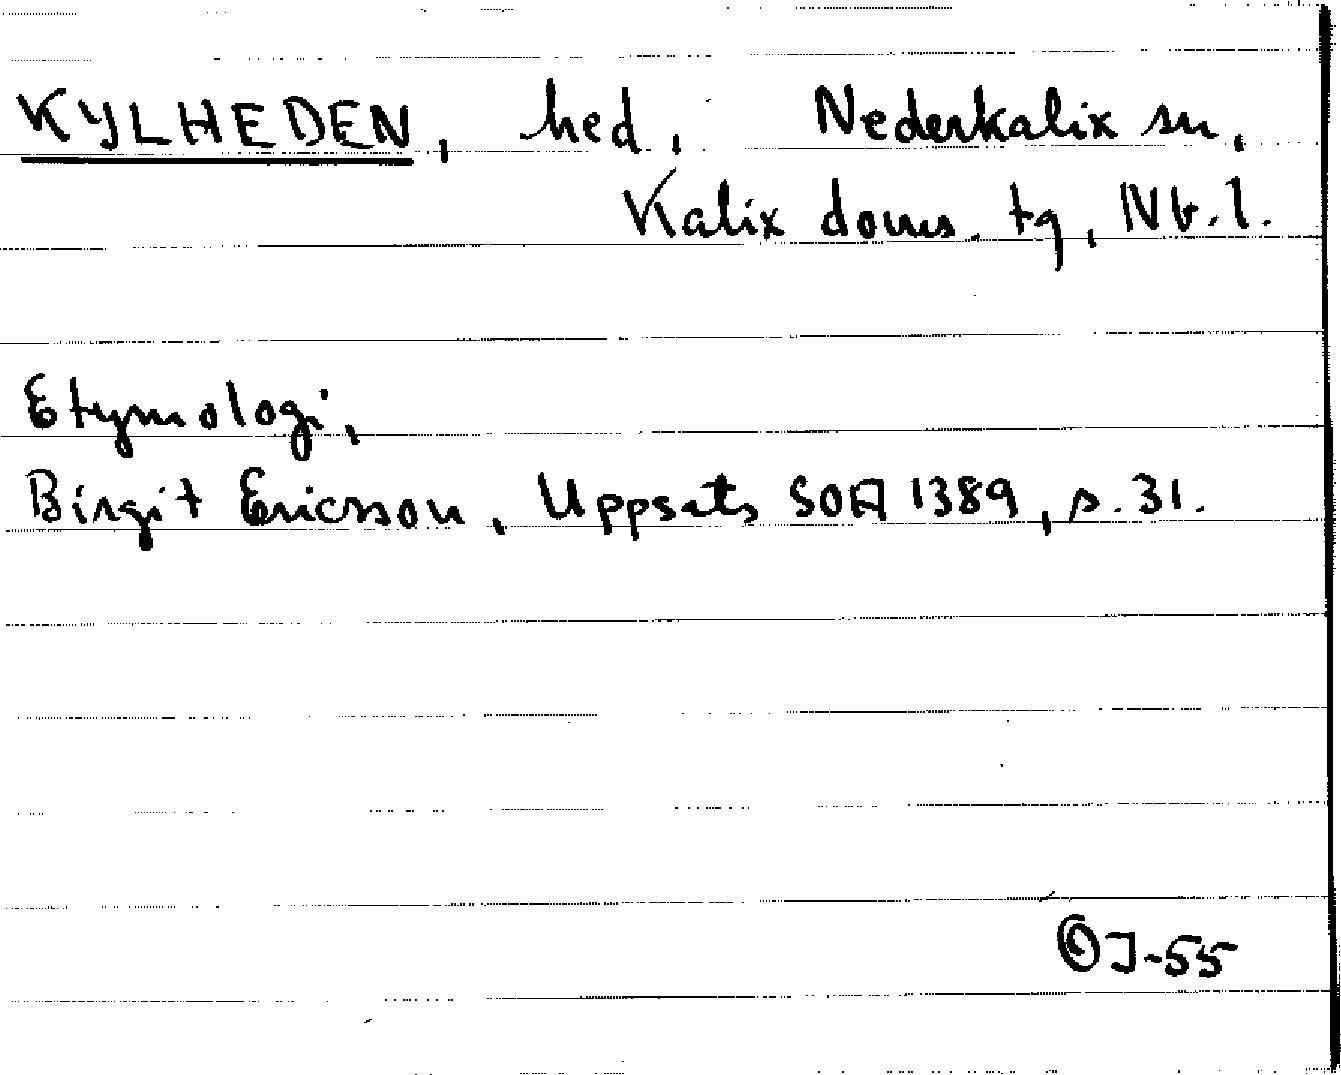 KYLHEDEN, hed, Nederkalix sn,
Kalix doms. tg, Nb. l.
Etymologi,
Birgit Ericsson, Uppsats SOA 1389, s. 31.
J-55